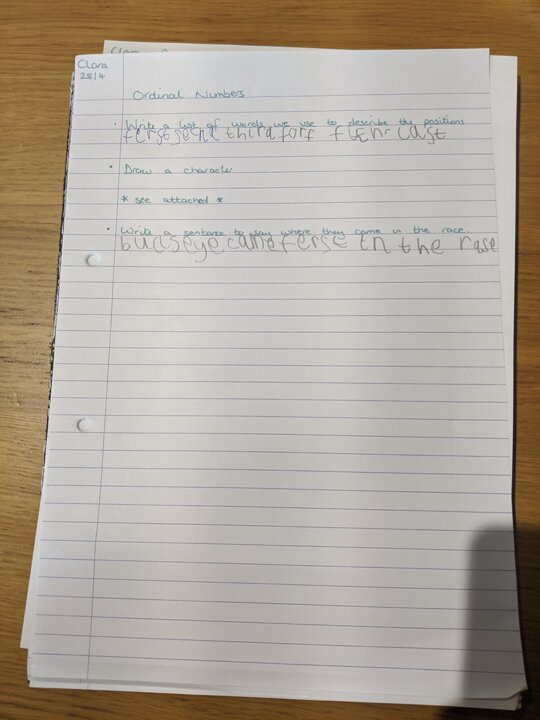 Clara
28/4
Ordinal Numbers
• Write a list of words we use to describe the positions
ferst third fort last
• Draw a character
* see attached *
• Write a sentence to say where they came in the race.
bullseye came ferst in the rase